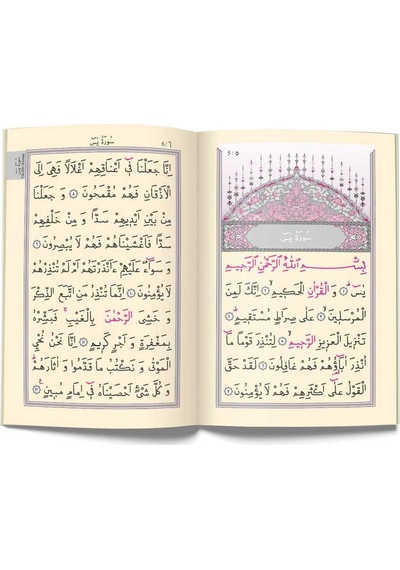 ٥/5
سُورَةُ يٰسٓ
بِسْمِ اللّٰهِ الرَّحْمٰنِ الرَّحِيمِ
يٰسٓ ﴿١﴾ وَ الْقُرْاٰنِ الْحَكِيمِ ﴿٢﴾ اِنَّكَ لَمِنَ
الْمُرْسَلِينَ ﴿٣﴾ عَلٰى صِرَاطٍ مُسْتَقِيمٍ ﴿٤﴾
تَنْزِيلَ الْعَزِيزِ الرَّحِيمِ ﴿٥﴾ لِتُنْذِرَ قَوْمًا مَٓا
اُنْذِرَ اٰبَٓاؤُهُمْ فَهُمْ غَافِلُونَ ﴿٦﴾ لَقَدْ حَقَّ
الْقَوْلُ عَلٰٓى اَكْثَرِهِمْ فَهُمْ لَا يُؤْمِنُونَ ﴿٧﴾
6/٦
سُورَةُ يٰسٓ
اِنَّا جَعَلْنَا فِٓى اَعْنَاقِهِمْ اَغْلَالًا فَهِىَ اِلَى
الْاَذْقَانِ فَهُمْ مُقْمَحُونَ ﴿٨﴾ وَ جَعَلْنَا
مِنْ بَيْنِ اَيْدِيهِمْ سَدًّا وَ مِنْ خَلْفِهِمْ
سَدًّا فَاَغْشَيْنَاهُمْ فَهُمْ لَا يُبْصِرُونَ ﴿٩﴾
وَ سَوَٓاءٌ عَلَيْهِمْ ءَاَنْذَرْتَهُمْ اَمْ لَمْ تُنْذِرْهُمْ
لَا يُؤْمِنُونَ ﴿١٠﴾ اِنَّمَا تُنْذِرُ مَنِ اتَّبَعَ الذِّكْرَ
وَ خَشِىَ الرَّحْمٰنَ بِالْغَيْبِ فَبَشِّرْهُ
بِمَغْفِرَةٍ وَ اَجْرٍ كَرِيمٍ ﴿١١﴾ اِنَّا نَحْنُ نُحْيِى
الْمَوْتٰى وَ نَكْتُبُ مَا قَدَّمُوا وَ اٰثَارَهُمْ
وَ كُلَّ شَىْءٍ اَحْصَيْنَاهُ فِٓى اِمَامٍ مُبِينٍ ﴿١٢﴾